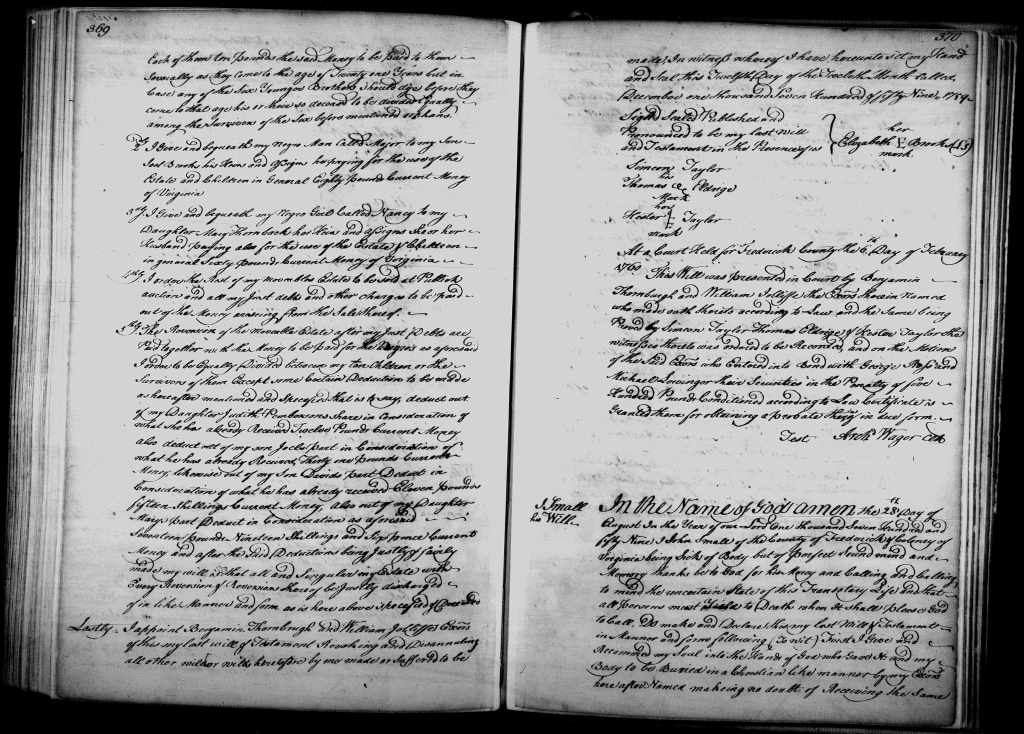 369
Each of them ten pounds the said Money to be paid to them
Severally as they Come to the age of Twenty one Years but in
Case any of the Six Younger Brothers should dye before they
come to that age his or their so deceased to be divided Equally
among the Survivors of the Six before mentioned orphans
2dly I Give and bequeath my Negro Man Called Major to my Son
Joel Burks his Heirs and assigns he paying for the use of the
Estate and Children in General Eighty pounds Current Money
of Virginia
3dly I Give and bequeath my Negro Girl Called Nancy to my
Daughter Mary Thornbrock her Heirs and assigns She or her
Husband paying also for the use of the Estate & Children
in general Sixty pounds Current Money of Virginia
4thly I order the Rest of my moveable Estate to be Sold at Publick
auction and all my Just debts and other Charges to be paid
out of the Money arising from the Sale thereof
5thly The Reversion of the Moveable Estate after my Just Debts are
Paid together with the Money to be paid for the Negroes as aforesaid
I order to be Equally Divided between my ten Children or the
Survivors of them Except some Certain Deduction to be made
as hereafter mentioned and Specified that is to say, deduct out
of my Daughter Judith Share in Consideration of
what She has already Received Twelve Pounds Current Money
also deduct out of my son Joels part in Consideration of
what he has already Received, Thirty one pounds Current
Money, likewise out of my Son Davids part Deduct in
Consideration of what he has already received Eleven pounds
fifteen Shillings Current Money, also out of my Daughter
Marys part Deduct in Consideration as aforesaid
Seventeen pounds Nineteen Shillings and Six pence Current
Money and after the said Deductions being Justly & fairly
made my will is that all and Singular my Estate with
Every Reversion & Reversions thereof be Justly
of in like Manner and form as is here above Specified &
Lastly I appoint Benjamin Thornbrugh and William Jolliffe Exors
of this my last will & Testament Revoking and Disannuling
all other will or wills heretofore by me made or Suffered to be
370
made In witness whereof I have hereunto Set my Hand
and Seal this Twelfth Day of the Twelfth Month Called
December one thousand Seven Hundred & fifty Nine 1759
Sign'd Sealed Published and
Pronounced to be my last Will
and Testament in the Presence of us
her
Elizabeth E Brooks (LS)
mark
Simeon Taylor
his
Thomas Eldrige
Mark
her
Hester Taylor
mark
At a Court Held for Frederick County the 6th Day of February
1760 This Will was presented in Court by Benjamin
Thornburgh and William Jolliffe the Exors therein Named
who made oath thereto according to Law and the Same being
Proved by Simeon Taylor Thomas Eldrige & Hester Taylor the
witnesses thereto was ordered to be Recorded, and on the Motion
of the Said Exors who Entered into Bond with George Ross and
Michael their Securities in the Penalty of five
Hundred Pounds Conditioned according to Law Certificate is
Granted them for obtaining a probate thereof in due form
Test Archd Wager
J Small
his Will
In the Name of God amen the 28th Day of
August In the Year of our Lord One thousand Seven Hundred and
fifty Nine I John Small of the County of Frederick & Coleney of
Virginia being Sick of Body but of Perfect Sound mind and
Memory thanks be to God for his Mercy and Calling and Calling
to mind the uncertain State of this Transetory Life and that
all Persons must Yield to Death when It Shall please God
to Call, Do make and Declare this my last Will & Testament
in Manner and form following (To wit) First I Give and
Recommend my Soul into the Hands of God who Gave It and my
Body to be Buried in a Christian like manner by my Exors
here after Named makeing no doubt of Receiving the Same